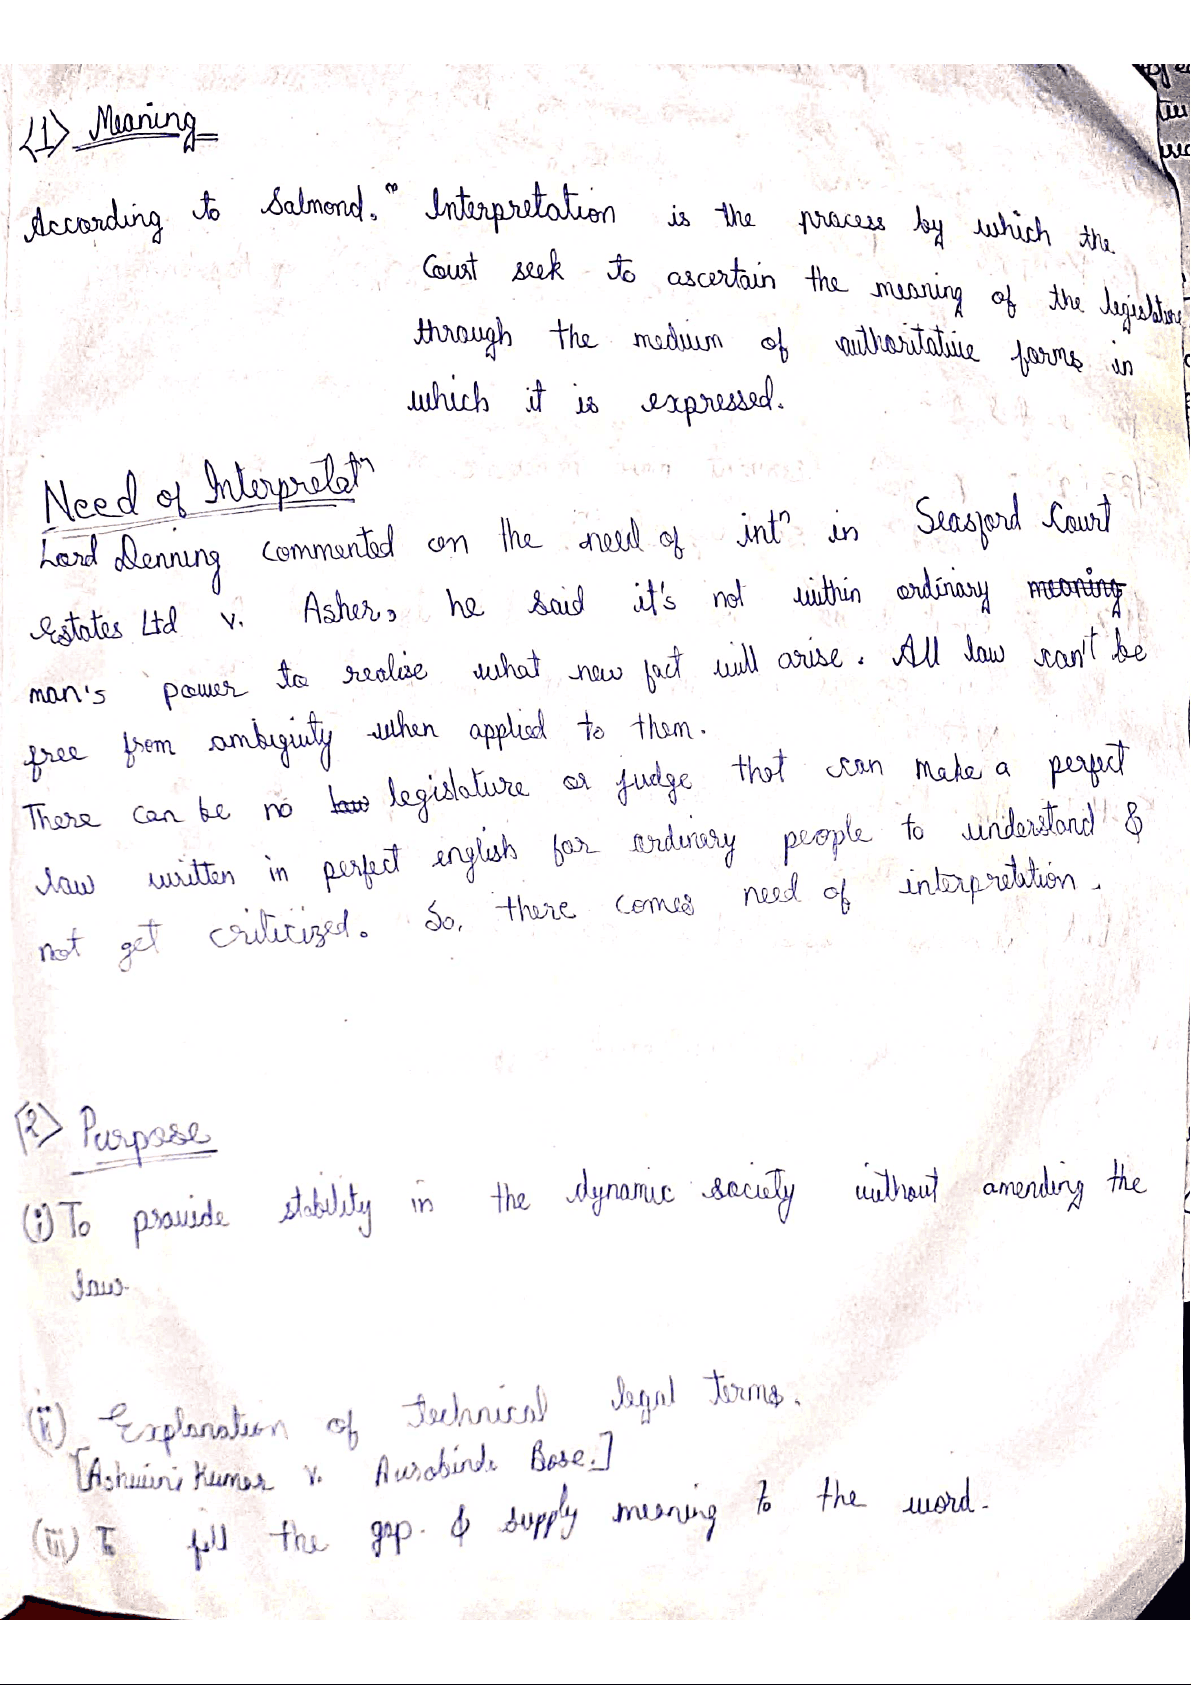 (1) Meaning
According to Salmond, " Interpretation is the process by which the
Court seek to ascertain the meaning of the legislature
through the medium of authoritative forms in
which it is expressed.
Need of Interpretatn
Lord Denning commented on the need of intn in Seasford Court
Estates Ltd v. Asher, he said it's not within ordinary meaning
man's power to realise what new fact will arise. All law can't be
free from ambiguity when applied to them.
There can be no law legislature or judge that can make a perfect
law written in perfect english for ordinary people to understand &
not get criticized. So, there comes need of interpretation.
(2) Purpose
(i) To provide stability in the dynamic society without amending the
law.
(ii) Explanation of technical legal terms.
[Ashwini Kumar v. Aurobindo Bose.]
(iii) To fill the gap & supply meaning to the word.